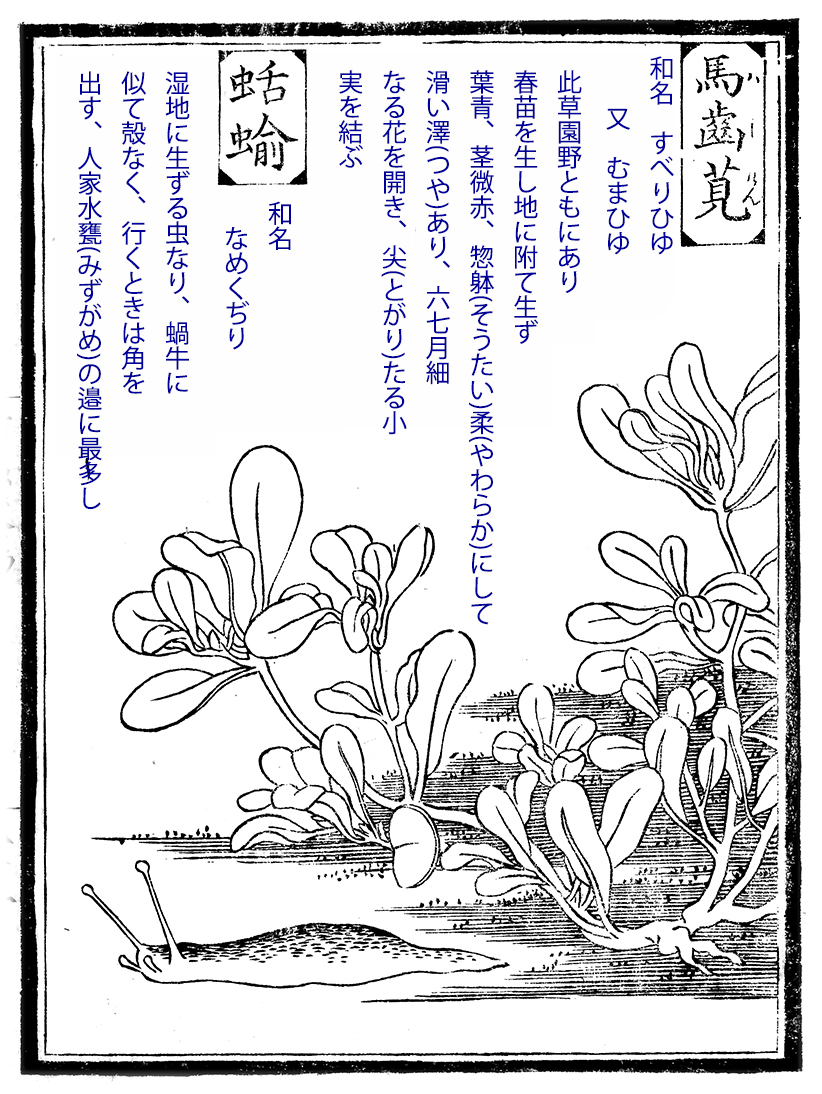 馬齒莧
ばしけん
和名　すべりひゆ
又　むまひゆ
此草園野ともにあり
春苗を生し地に附て生ず
葉青、茎微赤、惣躰(そうたい)柔(やわらか)にして
滑い澤(つや)あり、六七月細
なる花を開き、尖(とがり)たる小
実を結ぶ
蛞蝓
和名
なめくぢり
湿地に生ずる虫なり、蝸牛に
似て殻なく、行くときは角を
出す、人家水甕(みずがめ)の邉に最多し